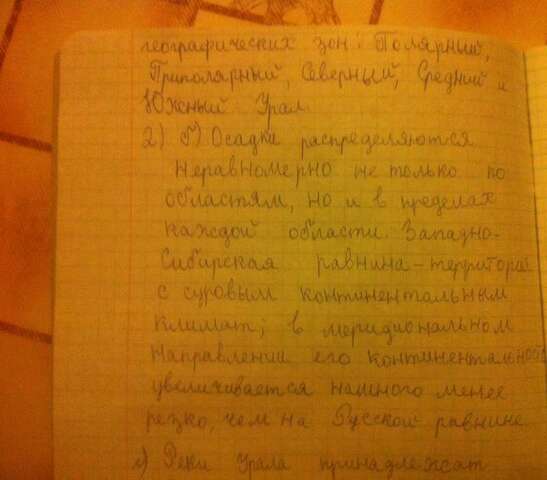 географических зон: Полярный,
Приполярный, Северный, Средний и
Южный Урал.
2) б) Осадки распределяются
неравномерно не только по
областям, но и в пределах
каждой области. Западно-
Сибирская равнина - территория
с суровым континентальным
климат; в меридиональном
направлении его континентальность
увеличивается намного менее
резко, чем на Русской равнине
Реки Урала принадлежат